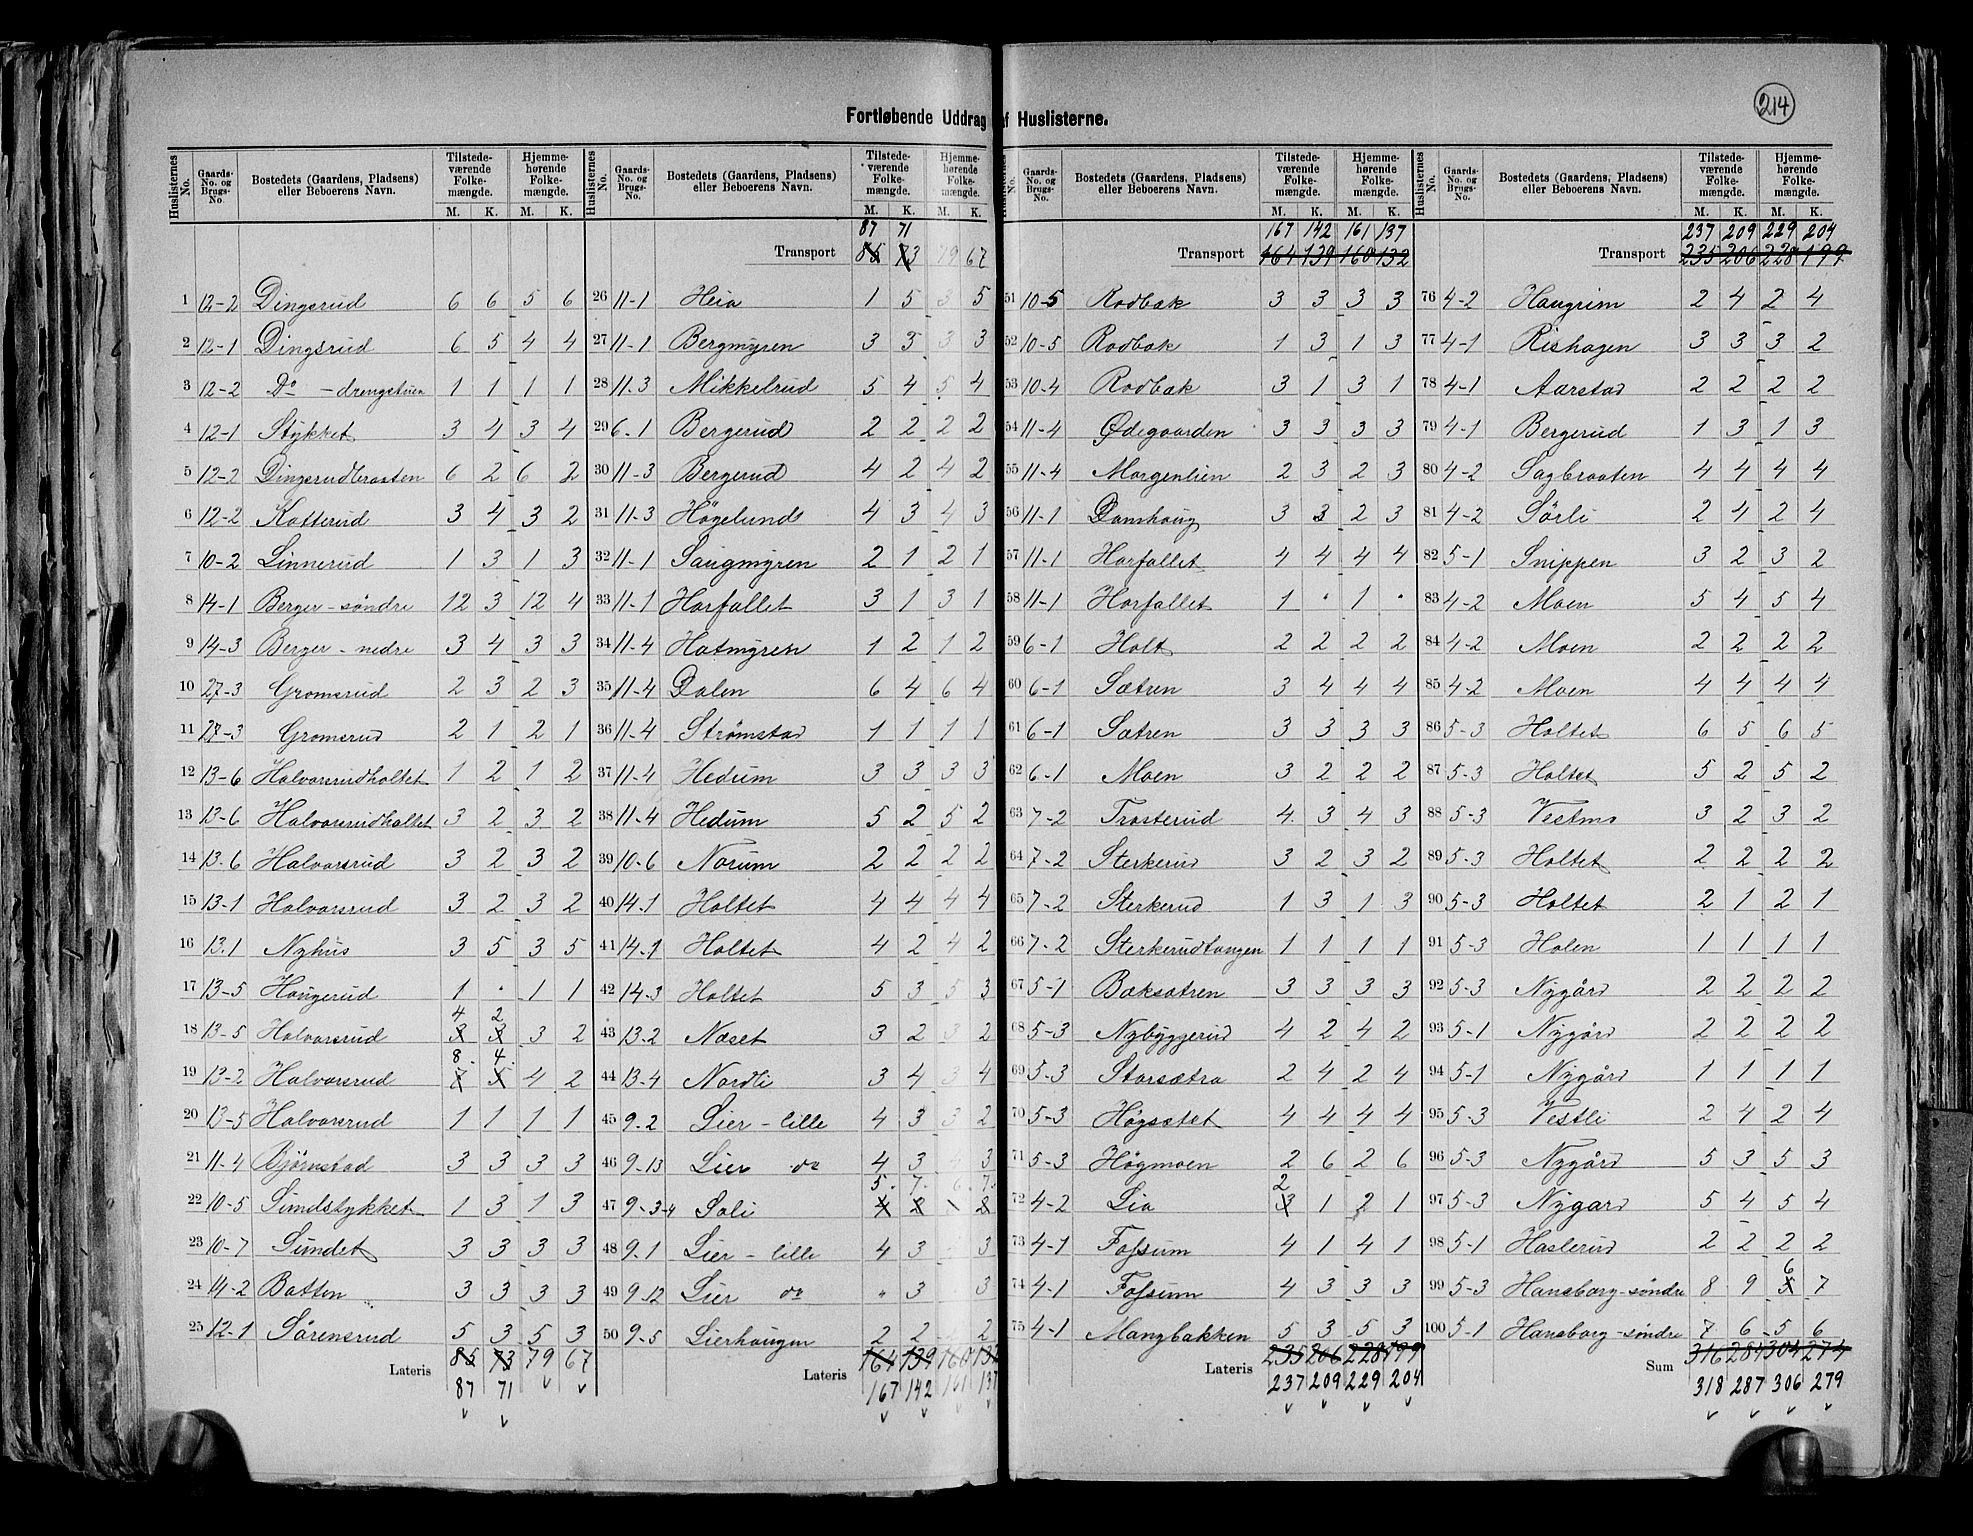 214
Fortløbende Uddrag af Huslisterne.
Huslisternes No. Gaards-No. og Brugs-No. Bostedets (Gaardens, Pladsens) eller Beboerens Navn. Tilstedeværende Folkemængde. M. K. Hjemmehørende Folkemængde. M. K.
1 12-2 Dingsrud 6 6 5 6
2 12-1 Dingsrud 6 5 4 4
3 12-2 Do - drengstuen 1 1 1 1
4 12-1 Stykket 3 4 3 4
5 12-2 Dingsrudbraaten 6 2 6 2
6 12-2 Kotterud 3 4 3 2
7 10-2 Linnerud 1 3 1 3
8 14-1 Berger - søndre 12 3 12 4
9 14-3 Berger - nedre 3 4 3 3
10 27-3 Gromsrud 2 3 2 3
11 27-3 Gromsrud 2 1 2 1
12 13-6 Halvorsrudholtet 1 2 1 2
13 13-6 Halvorsrudholtet 3 2 3 2
14 13-6 Halvorsrud 3 2 3 2
15 13-1 Halvorsrud 3 2 3 2
16 13-1 Nyhus 3 5 3 5
17 13-5 Haugerud 1 · 1 1
4 2
18 13-5 Halvorsrud 3 3 3 2
8 4
19 13-2 Halvorsrud 7 5 4 2
20 13-5 Halvorsrud 1 1 1 1
21 11-4 Bjørnstad 3 3 3 3
22 10-5 Sundstykket 1 3 1 3
23 10-7 Sundet 3 3 3 3
24 14-2 Batten 3 3 3 3
25 12-1 Sørensrud 5 3 5 3
Lateris 85 73 79 67
87 71
Huslisternes No. Gaards-No. og Brugs-No. Bostedets (Gaardens, Pladsens) eller Beboerens Navn. Tilstedeværende Folkemængde. M. K. Hjemmehørende Folkemængde. M. K.
87 71
Transport 85 73 79 67
26 11-1 Heia 1 5 3 5
27 11-1 Bergmyren 3 3 3 3
28 11-3 Mikkelrud 5 4 5 4
29 6-1 Bergerud 2 2 2 2
30 11-3 Bergerud 4 2 4 2
31 11-3 Høgelund 4 3 4 3
32 11-1 Saugmyren 2 1 2 1
33 11-1 Horfallet 3 1 3 1
34 11-4 Hatmyren 1 2 1 2
35 11-4 Dalen 6 4 6 4
36 11-4 Strømstad 1 1 1 1
37 11-4 Hedum 3 3 3 3
38 11-4 Hedum 5 2 5 2
39 10-6 Norum 2 2 2 2
40 14-1 Holtet 4 4 4 4
41 14-1 Holtet 4 2 4 2
42 14-3 Holtet 5 3 5 3
43 13-2 Næset 3 2 3 2
44 13-4 Nordli 3 4 3 4
45 9-2 Lier - lille 4 3 3 2
46 9-13 Lier do 4 3 3
5 7 6 7
47 9-3-4 Soli 4 8 8
48 9-1 Lier - lille 4 3 3
49 9-12 Lier do " 3 3
50 9-5 Lierhaugen 2 2 2
Lateris 164 139 160 132
167 142 161 137
Huslisternes No. Gaards-No. og Brugs-No. Bostedets (Gaardens, Pladsens) eller Beboerens Navn. Tilstedeværende Folkemængde. M. K. Hjemmehørende Folkemængde. M. K.
167 142 161 137
Transport 164 139 160 132
51 10-5 Rodbak 3 3 3 3
52 10-5 Rodbak 1 3 1 3
53 10-4 Rodbak 3 1 3 1
54 11-4 Ødegaarden 3 3 3 3
55 11-4 Morgenlien 2 3 2 3
56 11-1 Damhaug 3 3 2 3
57 11-1 Horfallet 4 4 4 4
58 11-1 Horfallet 1 · 1 ·
59 6-1 Holt 2 2 2 2
60 6-1 Sætren 3 4 4 4
61 6-1 Sætren 3 3 3 3
62 6-1 Moen 3 2 2 2
63 7-2 Trosterud 4 3 4 3
64 7-2 Sterkerud 3 2 3 2
65 7-2 Sterkerud 1 3 1 3
66 7-2 Sterkerudtangen 1 1 1 1
67 5-1 Baksætren 3 3 3 3
68 5-3 Nybyggerud 4 2 4 2
69 5-3 Storsætra 2 4 2 4
70 5-3 Høgsætet 4 4 4 4
71 5-3 Høgmoen 2 6 2 6
2
72 4-2 Lia 3 1 2 1
73 4-1 Fossum 4 1 4 1
74 4-1 Fossum 4 3 3 3
75 4-1 Mangbakken 5 3 5 3
Lateris 235 206 228 199
237 209 229 204
Huslisternes No. Gaards-No. og Brugs-No. Bostedets (Gaardens, Pladsens) eller Beboerens Navn. Tilstedeværende Folkemængde. M. K. Hjemmehørende Folkemængde. M. K.
237 209 229 204
Transport 235 206 228 199
76 4-2 Haugrim 2 4 2 4
77 4-1 Rishagen 3 3 3 2
78 4-1 Aarstad 2 2 2 2
79 4-1 Bergerud 1 3 1 3
80 4-2 Sagbraaten 4 4 4 4
81 4-2 Sørli 2 4 2 4
82 5-1 Snippen 3 2 3 2
83 4-2 Moen 5 4 5 4
84 4-2 Moen 2 2 2 2
85 4-2 Moen 4 4 4 4
86 5-3 Holtet 6 5 6 5
87 5-3 Holtet 5 2 5 2
88 5-3 Vestmo 3 2 3 2
89 5-3 Holtet 2 2 2 2
90 5-3 Holtet 2 1 2 1
91 5-3 Holen 1 1 1 1
92 5-3 Nygård 2 2 2 2
93 5-1 Nygård 2 2 2 2
94 5-1 Nygård 1 1 1 1
95 5-3 Vestli 2 4 2 4
96 5-3 Nygård 5 3 5 3
97 5-3 Nygård 5 4 5 4
98 5-1 Haslerud 2 2 2 2
6
99 5-3 Hansborg-søndre 8 9 5 7
100 5-1 Hansborg-søndre 7 6 5 6
Sum 316 284 304 274
318 287 306 279